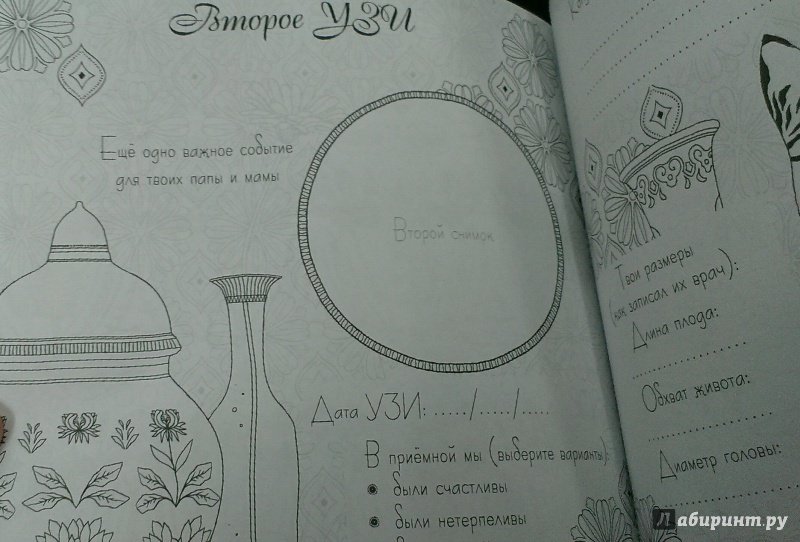 Второе УЗИ
Ещё одно важное событие
для твоих папы и мамы
Второй снимок
Дата УЗИ: ...../...../.....
В приёмной мы (выберите варианты):
были счастливы
были нетерпеливы
Твои размеры
(как записал их врач):
Длина плода:
Обхват живота:
Диаметр головы:
Лабиринт.ру